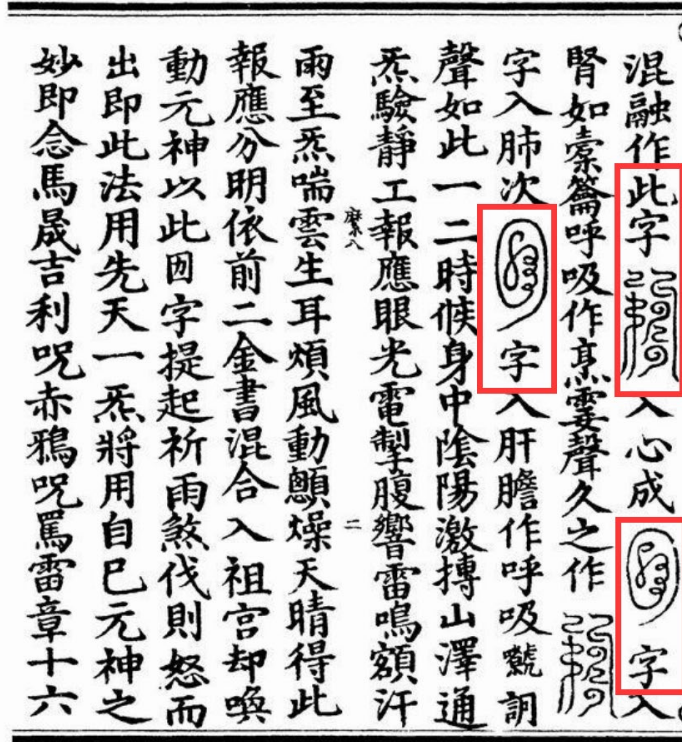 混融作此字入心成字入
腎如橐籥呼吸作烹雯聲久之作
字入肺次字入肝膽作呼吸虩訶
聲如此一二時候身中陰陽激摶山澤通
炁驗靜工報應眼光電掣腹響雷鳴額汗
雨至炁喘雲生耳煩風動顫燥天晴得此
二
報應分明依前二金書混合入祖宫却喚
動元神以此囙字提起祈雨煞伐則怒而
出即此法用先天一炁將用自巳元神之
妙即念馬晟吉利呪赤鴉呪罵雷章十六